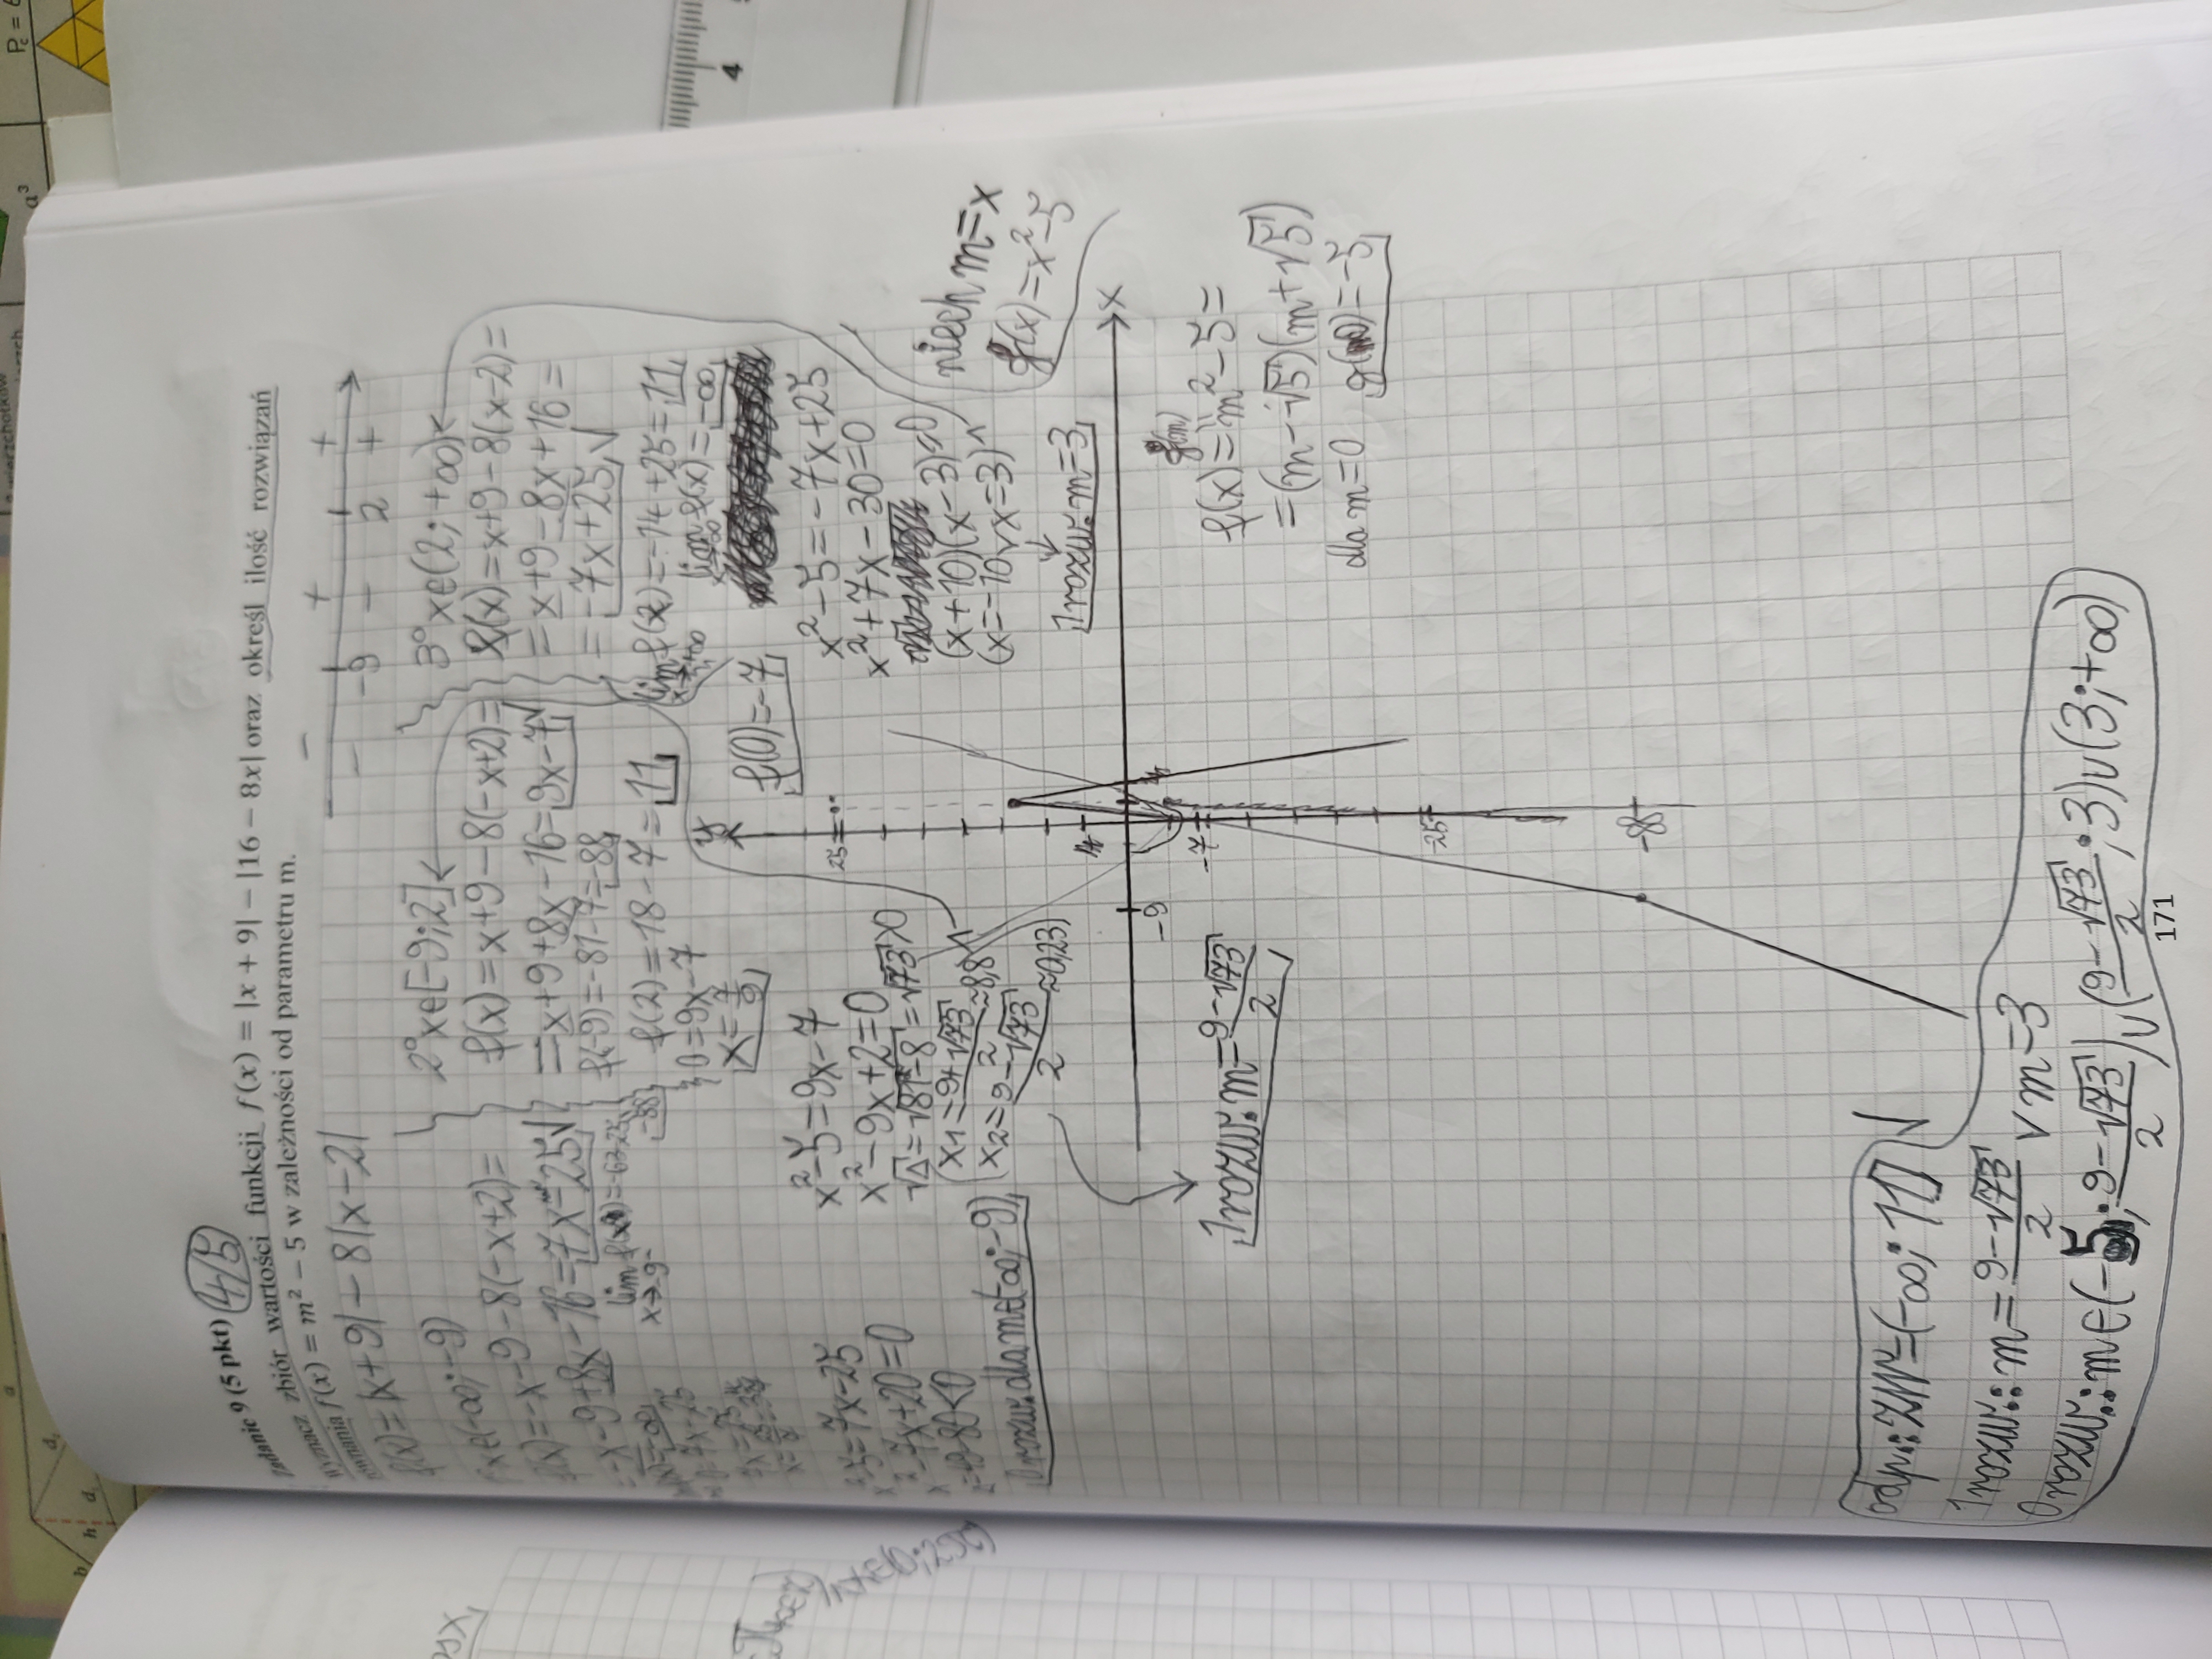 zadanie 9 (5 pkt) 4/5
wyznacz zbiór wartości funkcji f(x) = |x + 9| − |16 − 8x| oraz określ ilość rozwiązań
równania f(x) = m² − 5 w zależności od parametru m.
f(x) = |x+9| − 8|x−2|
− − + − + +
−9 2
x∈(−∞; −9)
f(x) = −x−9−8(−x+2)=
= −x−9+8x−16=7x−25√
lim f(x) = −63−25=
x→−9⁻
−88
x²−5=7x−25
x²−7x+20=0
0 rozw. dla m∈(−∞; −9)
2° x∈[−9; 2]
f(x) = x+9−8(−x+2)=
= x+9+8x−16=9x−7√
f(−9)=−81−7=−88
f(2)=18−7=11
0=9x−7
x=7/9
f(0)=−7
x²−5=9x−7
x²−9x+2=0
√Δ=√81−8=√73>0
(x₁=(9+√73)/2≈8,8 ∧
(x₂=(9−√73)/2≈0,23)
1 rozw.: m=(9−√73)/2
3° x∈(2; +∞)
f(x)=x+9−8(x−2)=
= x+9−8x+16=
= −7x+25√
lim f(x)=−14+25=11
lim f(x)=−∞
x²−5=−7x+25
x²+7x−30=0
(x+10)(x−3)
(x=−10 ∨ x=3) ∧
1 rozw.: m=3
niech m=x
g(x)=x²−5
y
25
14
−9
−7
−25
−88
x
f(x)=m²−5=
g(m)
=(m−√5)(m+√5)
dla m=0 g(m)=−5
odp.: ZW=(−∞; 11] √
1 rozw.: m=(9−√73)/2 ∨ m=3
0 rozw.: m∈(−5; (9−√73)/2) ∪ ((9−√73)/2; 3) ∪ (3; +∞)
171
4
a³